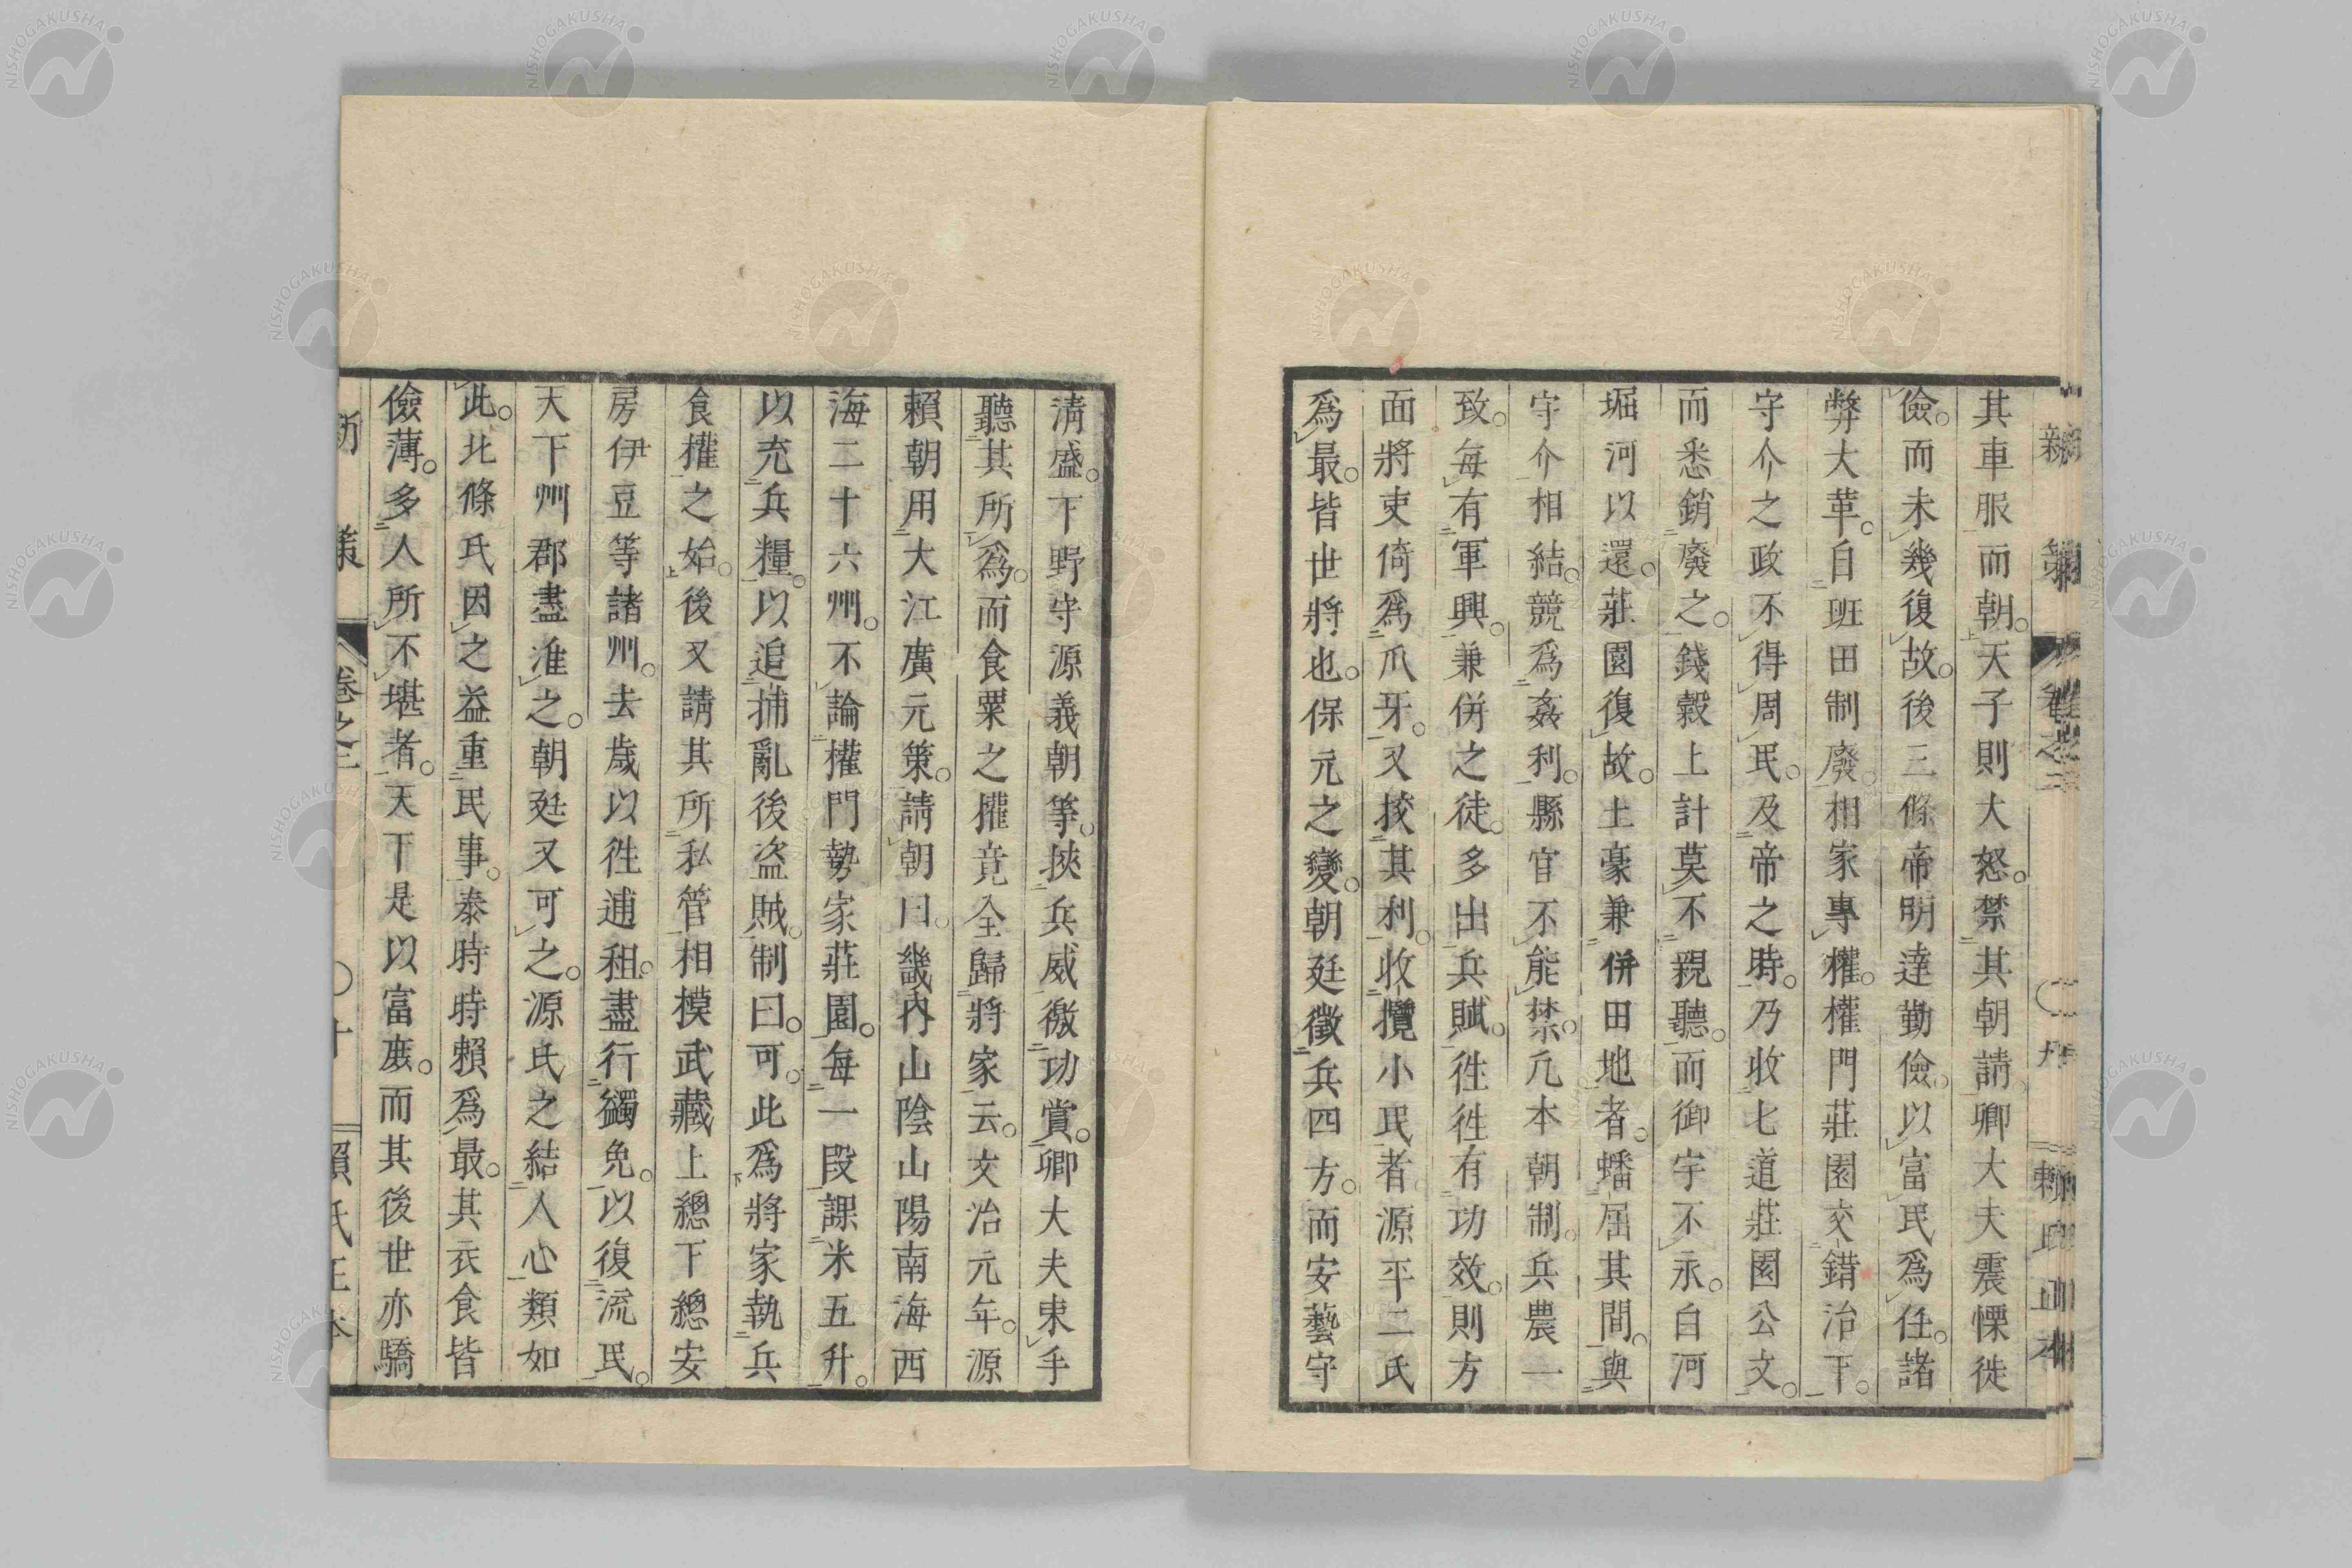 其車服而朝。天子則大怒。禁其朝請。卿大夫震慄徙
儉。而未幾復故。後三條帝明達勤儉。以富民爲任。諸
弊大革。自班田制廢。相家專權。權門莊園交錯治下。
守介之政不得周民。及帝之時。乃收七道莊園公文。
而悉銷廢之。錢穀上計莫不親聽。而御宇不永。白河
堀河以還。莊園復故。土豪兼併田地者。蟠居其間。與
守介相結。競爲姦利。縣官不能禁。凡本朝制。兵農一
致。每有軍興。兼併之徒。多出兵賦。徃徃有功效。則方
面將吏倚爲爪牙。又挍其利。收攬小民者源平二氏
爲最。皆世將也。保元之變。朝廷徵兵四方。而安藝守
清盛。下野守源義朝等。挾兵威徼功賞。卿大夫束手
聽其所爲。而食粟之權竟全歸將家云。文治元年。源
賴朝用大江廣元策。請朝曰。畿內山陰山陽南海西
海二十六州。不論權門勢家莊園。每一段課米五升。
以充兵糧。以追捕亂後盜賊。制曰。可。此爲將家執兵
食權之始。後又請其所私管相模武藏上總下總安
房伊豆等諸州。去歲以徃逋租。盡行蠲免。以復流民。
天下州郡盡准之。朝廷又可之。源氏之結人心類如
此。北條氏因之益重民事。泰時時賴爲最。其衣食皆
儉薄。多人所不堪者。天下是以富庶。而其後世亦驕
新策
卷之二
賴氏正本